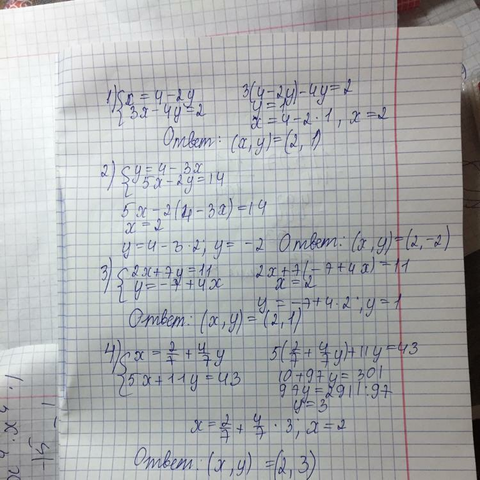 1) {x = 4 - 2y
{3x - 4y = 2
3(4-2y) - 4y = 2
y = 1
x = 4 - 2 · 1, x = 2
Ответ: (x, y) = (2, 1)
2) {y = 4 - 3x
{5x - 2y = 14
5x - 2(4 - 3x) = 14
x = 2
y = 4 - 3 · 2; y = -2 Ответ: (x, y) = (2, -2)
3) {2x + 7y = 11
{y = -7 + 4x
2x + 7(-7 + 4x) = 11
x = 2
y = -7 + 4 · 2; y = 1
Ответ: (x, y) = (2, 1)
4) {x = 2/7 + 4/7 y
{5x + 11y = 43
5(2/7 + 4/7 y) + 11y = 43
10 + 97y = 301
97y = 291 | : 97
y = 3
x = 2/7 + 4/7 · 3; x = 2
Ответ: (x, y) = (2, 3)